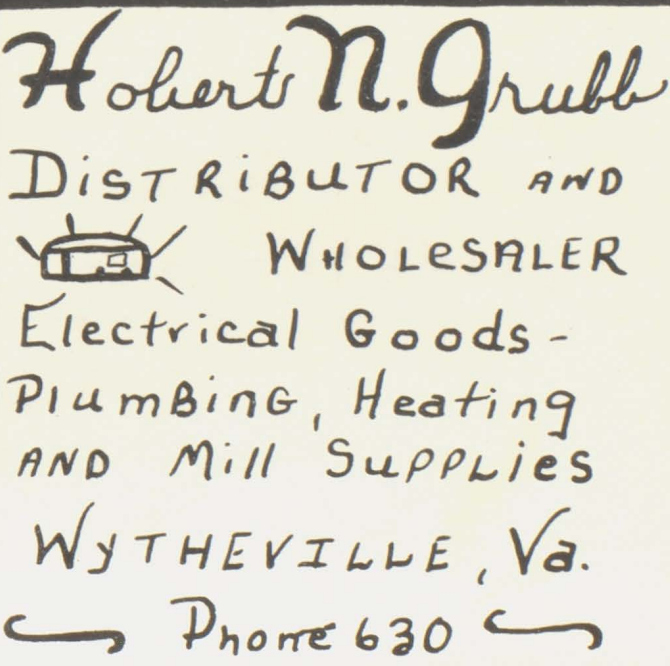 Hobert N. Grubb
DISTRIBUTOR AND
WHOLESALER
Electrical Goods -
Plumbing, Heating
AND Mill Supplies
WYTHEVILLE, Va.
Phone 630